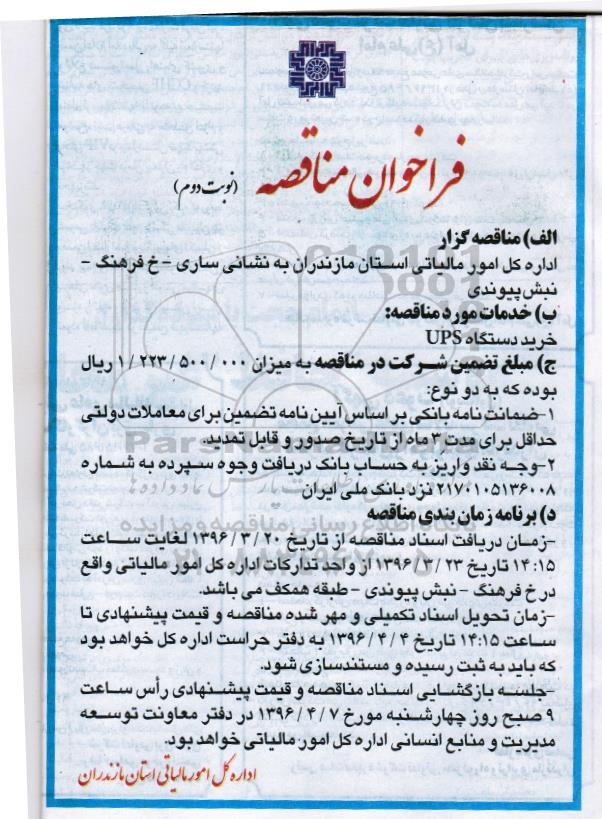 فراخوان مناقصه (نوبت دوم)
الف) مناقصه گزار
اداره کل امور مالیاتی استان مازندران به نشانی ساری - خ فرهنگ -
نبش پیوندی
ب) خدمات مورد مناقصه:
خرید دستگاه UPS
ج) مبلغ تضمین شرکت در مناقصه به میزان ۱/۲۲۳/۵۰۰/۰۰۰ ریال
بوده که به دو نوع:
۱-ضمانت نامه بانکی بر اساس آیین نامه تضمین برای معاملات دولتی
حداقل برای مدت ۳ ماه از تاریخ صدور و قابل تمدید.
۲-وجه نقد واریز به حساب بانک دریافت وجوه سپرده به شماره
۲۱۷۰۱۰۵۱۳۶۰۰۸ نزد بانک ملی ایران
د) برنامه زمان بندی مناقصه
-زمان دریافت اسناد مناقصه از تاریخ ۱۳۹۶/۳/۲۰ لغایت ساعت
۱۴:۱۵ تاریخ ۱۳۹۶/۳/۲۳ از واحد تدارکات اداره کل امور مالیاتی واقع
در خ فرهنگ - نبش پیوندی - طبقه همکف می باشد.
-زمان تحویل اسناد تکمیلی و مهر شده مناقصه و قیمت پیشنهادی تا
ساعت ۱۴:۱۵ تاریخ ۱۳۹۶/۴/۴ به دفتر حراست اداره کل خواهد بود
که باید به ثبت رسیده و مستندسازی شود.
-جلسه بازگشایی اسناد مناقصه و قیمت پیشنهادی رأس ساعت
۹ صبح روز چهارشنبه مورخ ۱۳۹۶/۴/۷ در دفتر معاونت توسعه
مدیریت و منابع انسانی اداره کل امور مالیاتی خواهد بود.
اداره کل امور مالیاتی استان مازندران